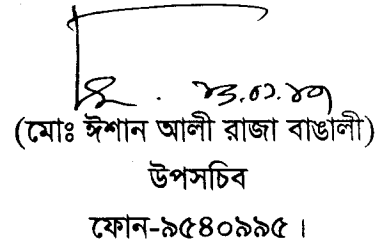 (মোঃ ঈশান আলী রাজা বাঙালী)
উপসচিব
ফোন-৯৫৪০৯৯৫ ।